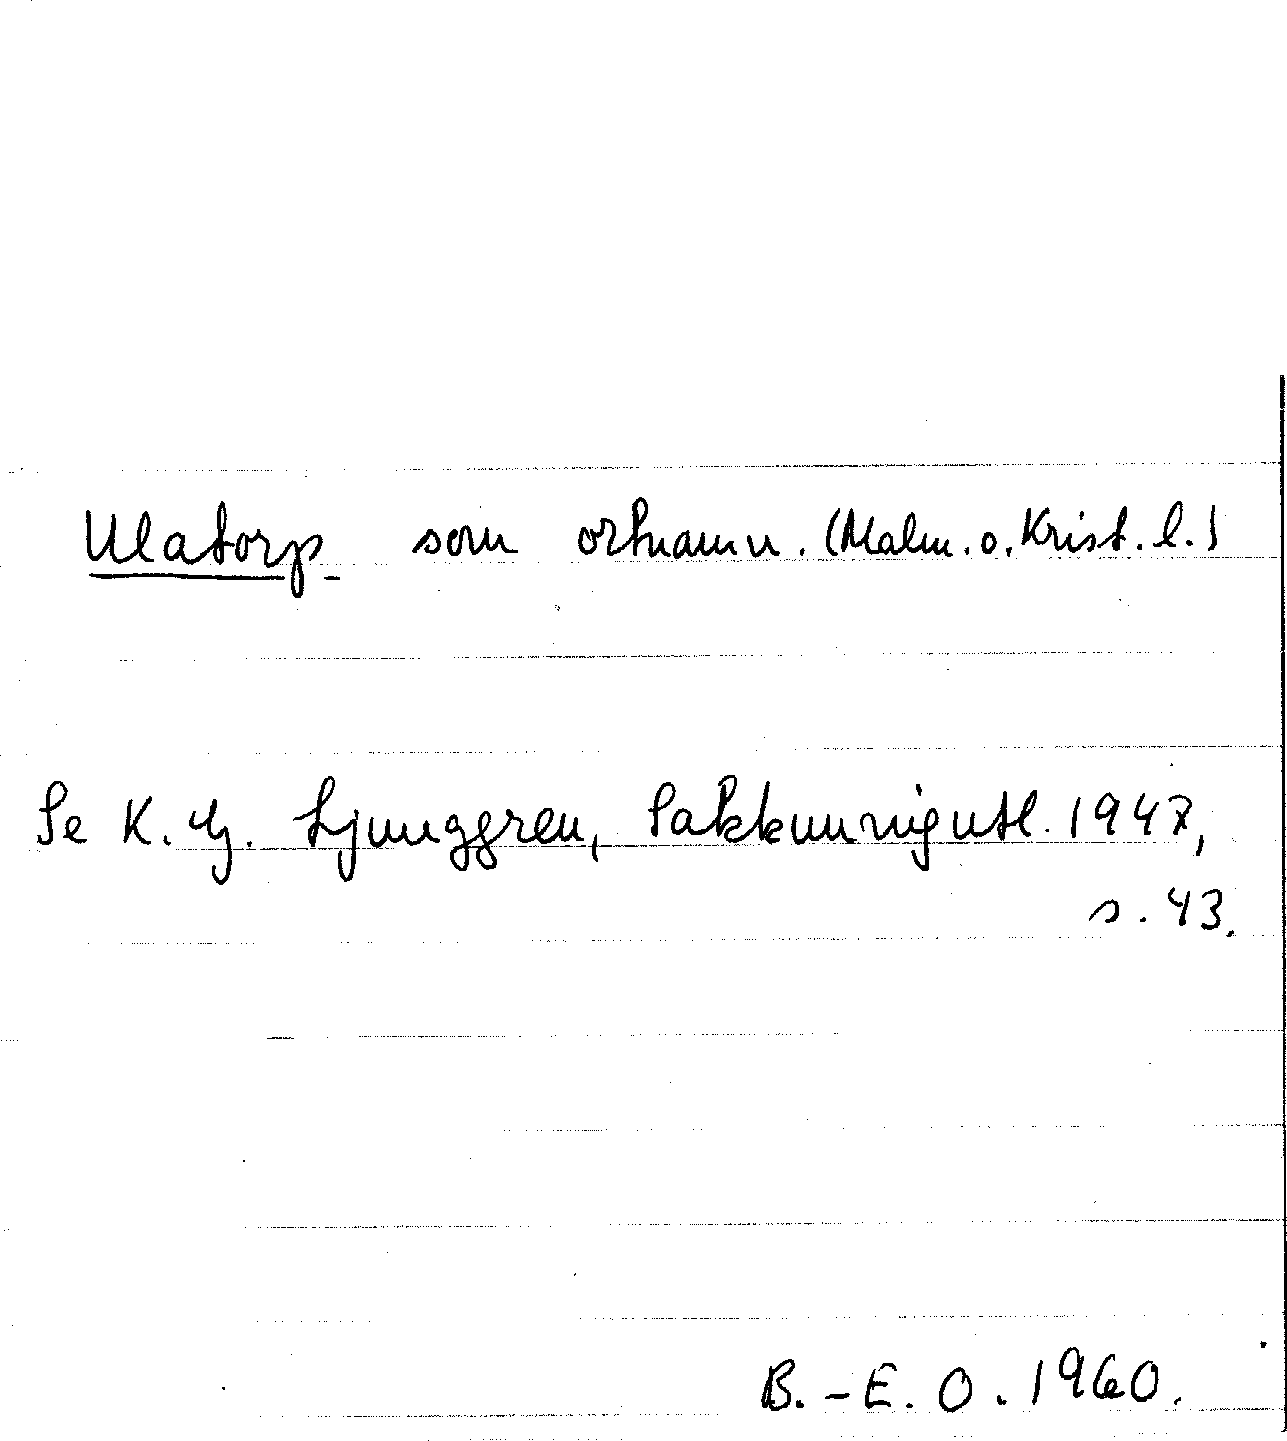 Ulatorp som ortnamn. (Malm. o. Krist. l.)
Se K. G. Ljunggren, Sakkunnigutl. 1947,
s. 43.
B.-E. O. 1960.